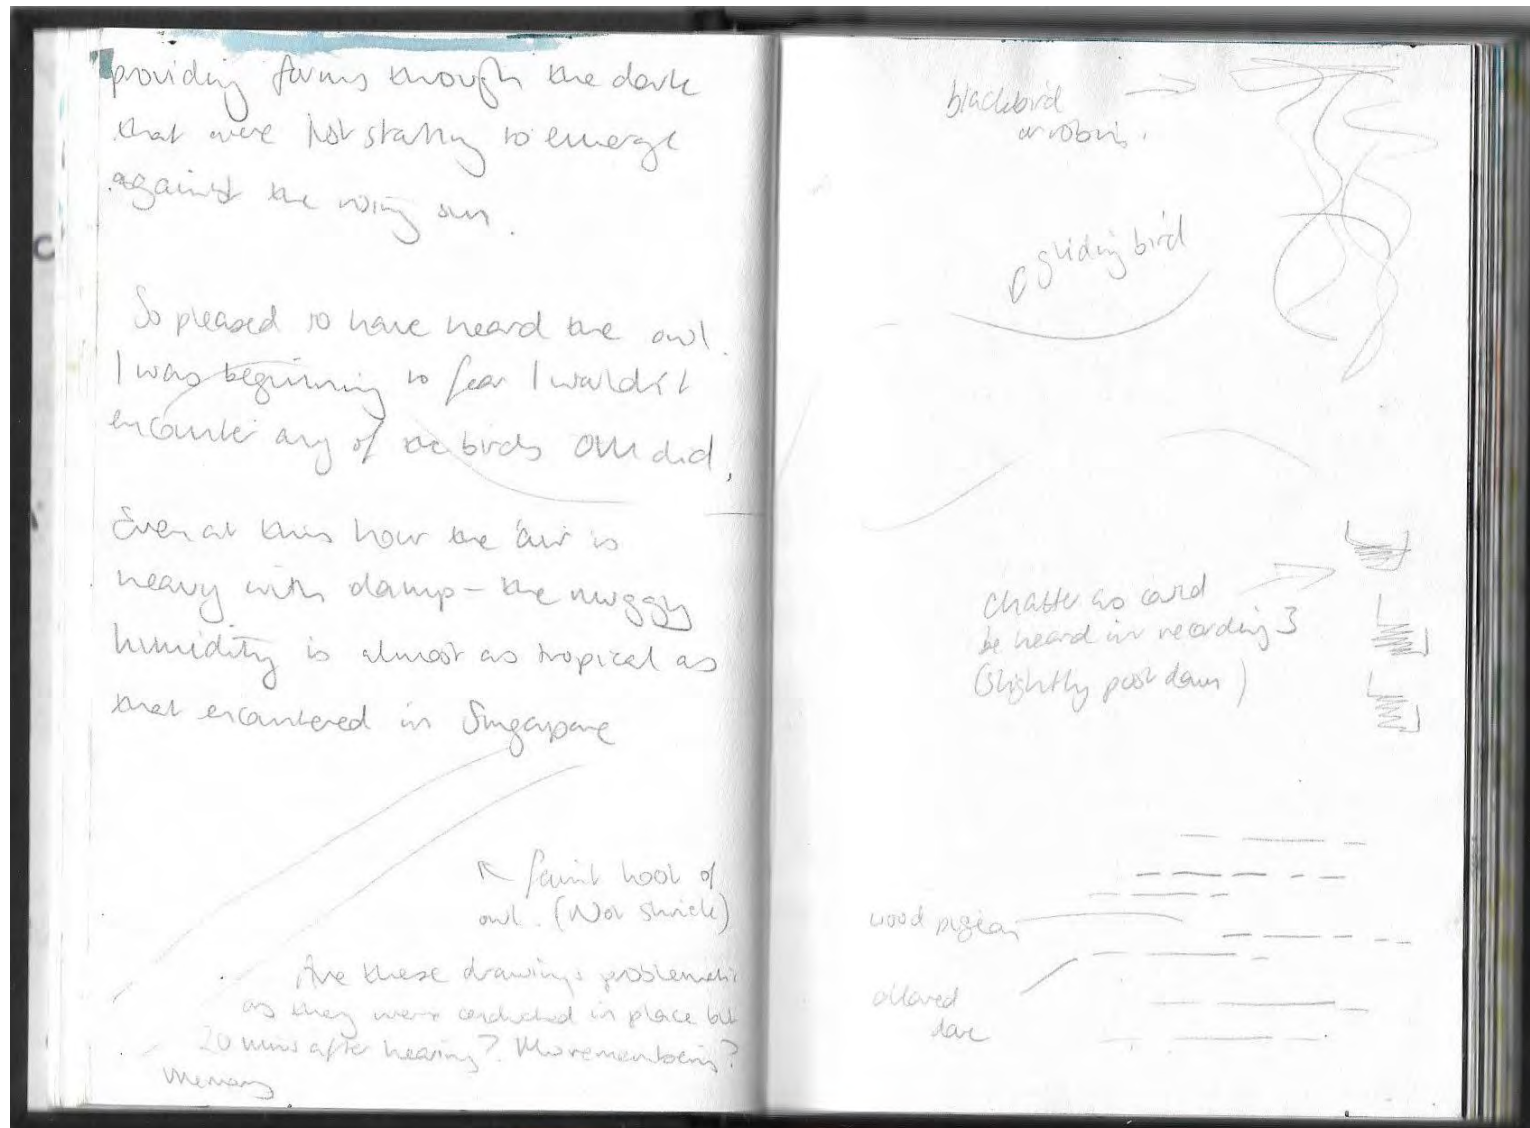 providing forms through the dark
that were just starting to emerge
against the rising sun.
So pleased to have heard the owl.
I was beginning to fear I wouldn't
encounter any of the birds did,
Even at this hour the air is
heavy with damp – the muggy
humidity is almost as tropical as
that encountered in Singapore
faint hoot of
owl. (Not shriek)
Are these drawings problematic
as they were conducted in place but
20 mins after hearing? Misremembering?
Memory
blackbird
or robin.
gliding bird
chatter as could
be heard in recording 3
(slightly post dawn)
wood pigeon
collared
dove